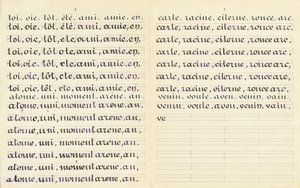 toi, oie, tôt, été, ami, amie, en,
toi, oie, tôt, été, ami, amie, en,
toi, oie, tôt, ete, ami, amie, en,
toi, oie, tôt, ete, ami, amie, en,
toi, oie, tôt, ete, ami, amie, en,
toi, oie, tôt, ete, ami, amie, en,
atome, uni, moment arene, an,
atome, uni, moment arene, an,
atome, uni, moment arene, an,
atome, uni, moment arene, an,
atome, uni, moment arene, an,
atome, uni, moment arene, an,
atome, uni, moment arene, an,
carte, racine, citerne, ronce arc,
carte, racine, citerne, ronce arc,
carte, racine, citerne, ronce arc,
carte, racine, citerne, ronce arc,
carte, racine, citerne, ronce arc,
carte, racine, citerne, ronce arc,
venin, voute, aveu, venin, vain,
venin, voute, aveu, venin, vain,
ve